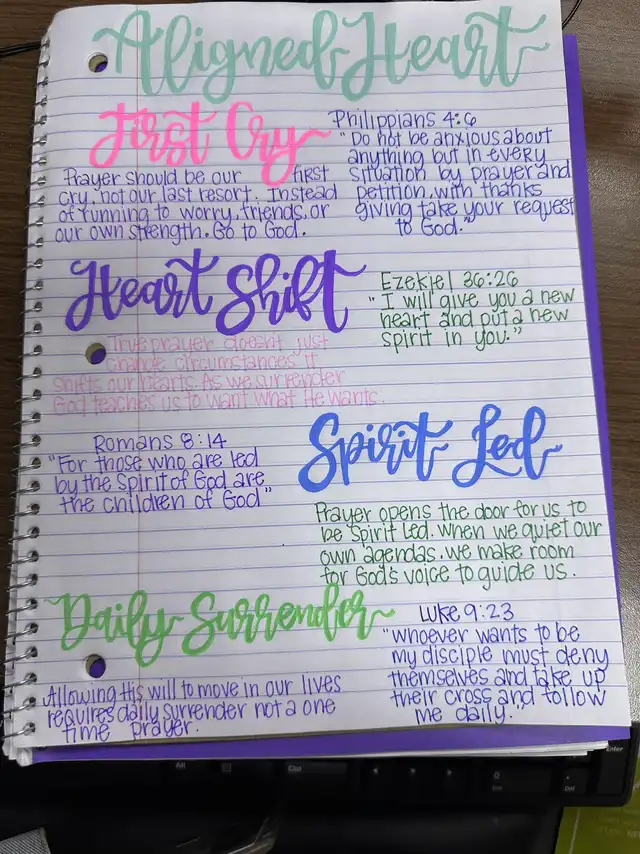 Aligned Heart
First Cry
Prayer should be our first
cry, not our last resort. Instead
of running to worry, friends, or
our own strength. Go to God.
Philippians 4:6
"Do not be anxious about
anything but in every
situation by prayer and
petition, with thanks
giving take your request
to God."
Heart Shift
True prayer doesnt just
change circumstances it
shifts our hearts. As we surrender
God teaches us to want what He wants.
Ezekiel 36:26
"I will give you a new
heart and put a new
spirit in you."
Romans 8:14
"For those who are led
by the Spirit of God are
the children of God"
Spirit Led
Prayer opens the door for us to
be Spirit Led. When we quiet our
own agendas, we make room
for God's voice to guide us.
Daily Surrender
Allowing His will to move in our lives
requires daily surrender not a one
time prayer.
Luke 9:23
"whoever wants to be
my disciple must deny
themselves and take up
their cross and follow
me daily."
Alt
Ctrl
Enter
0
Ins
Del